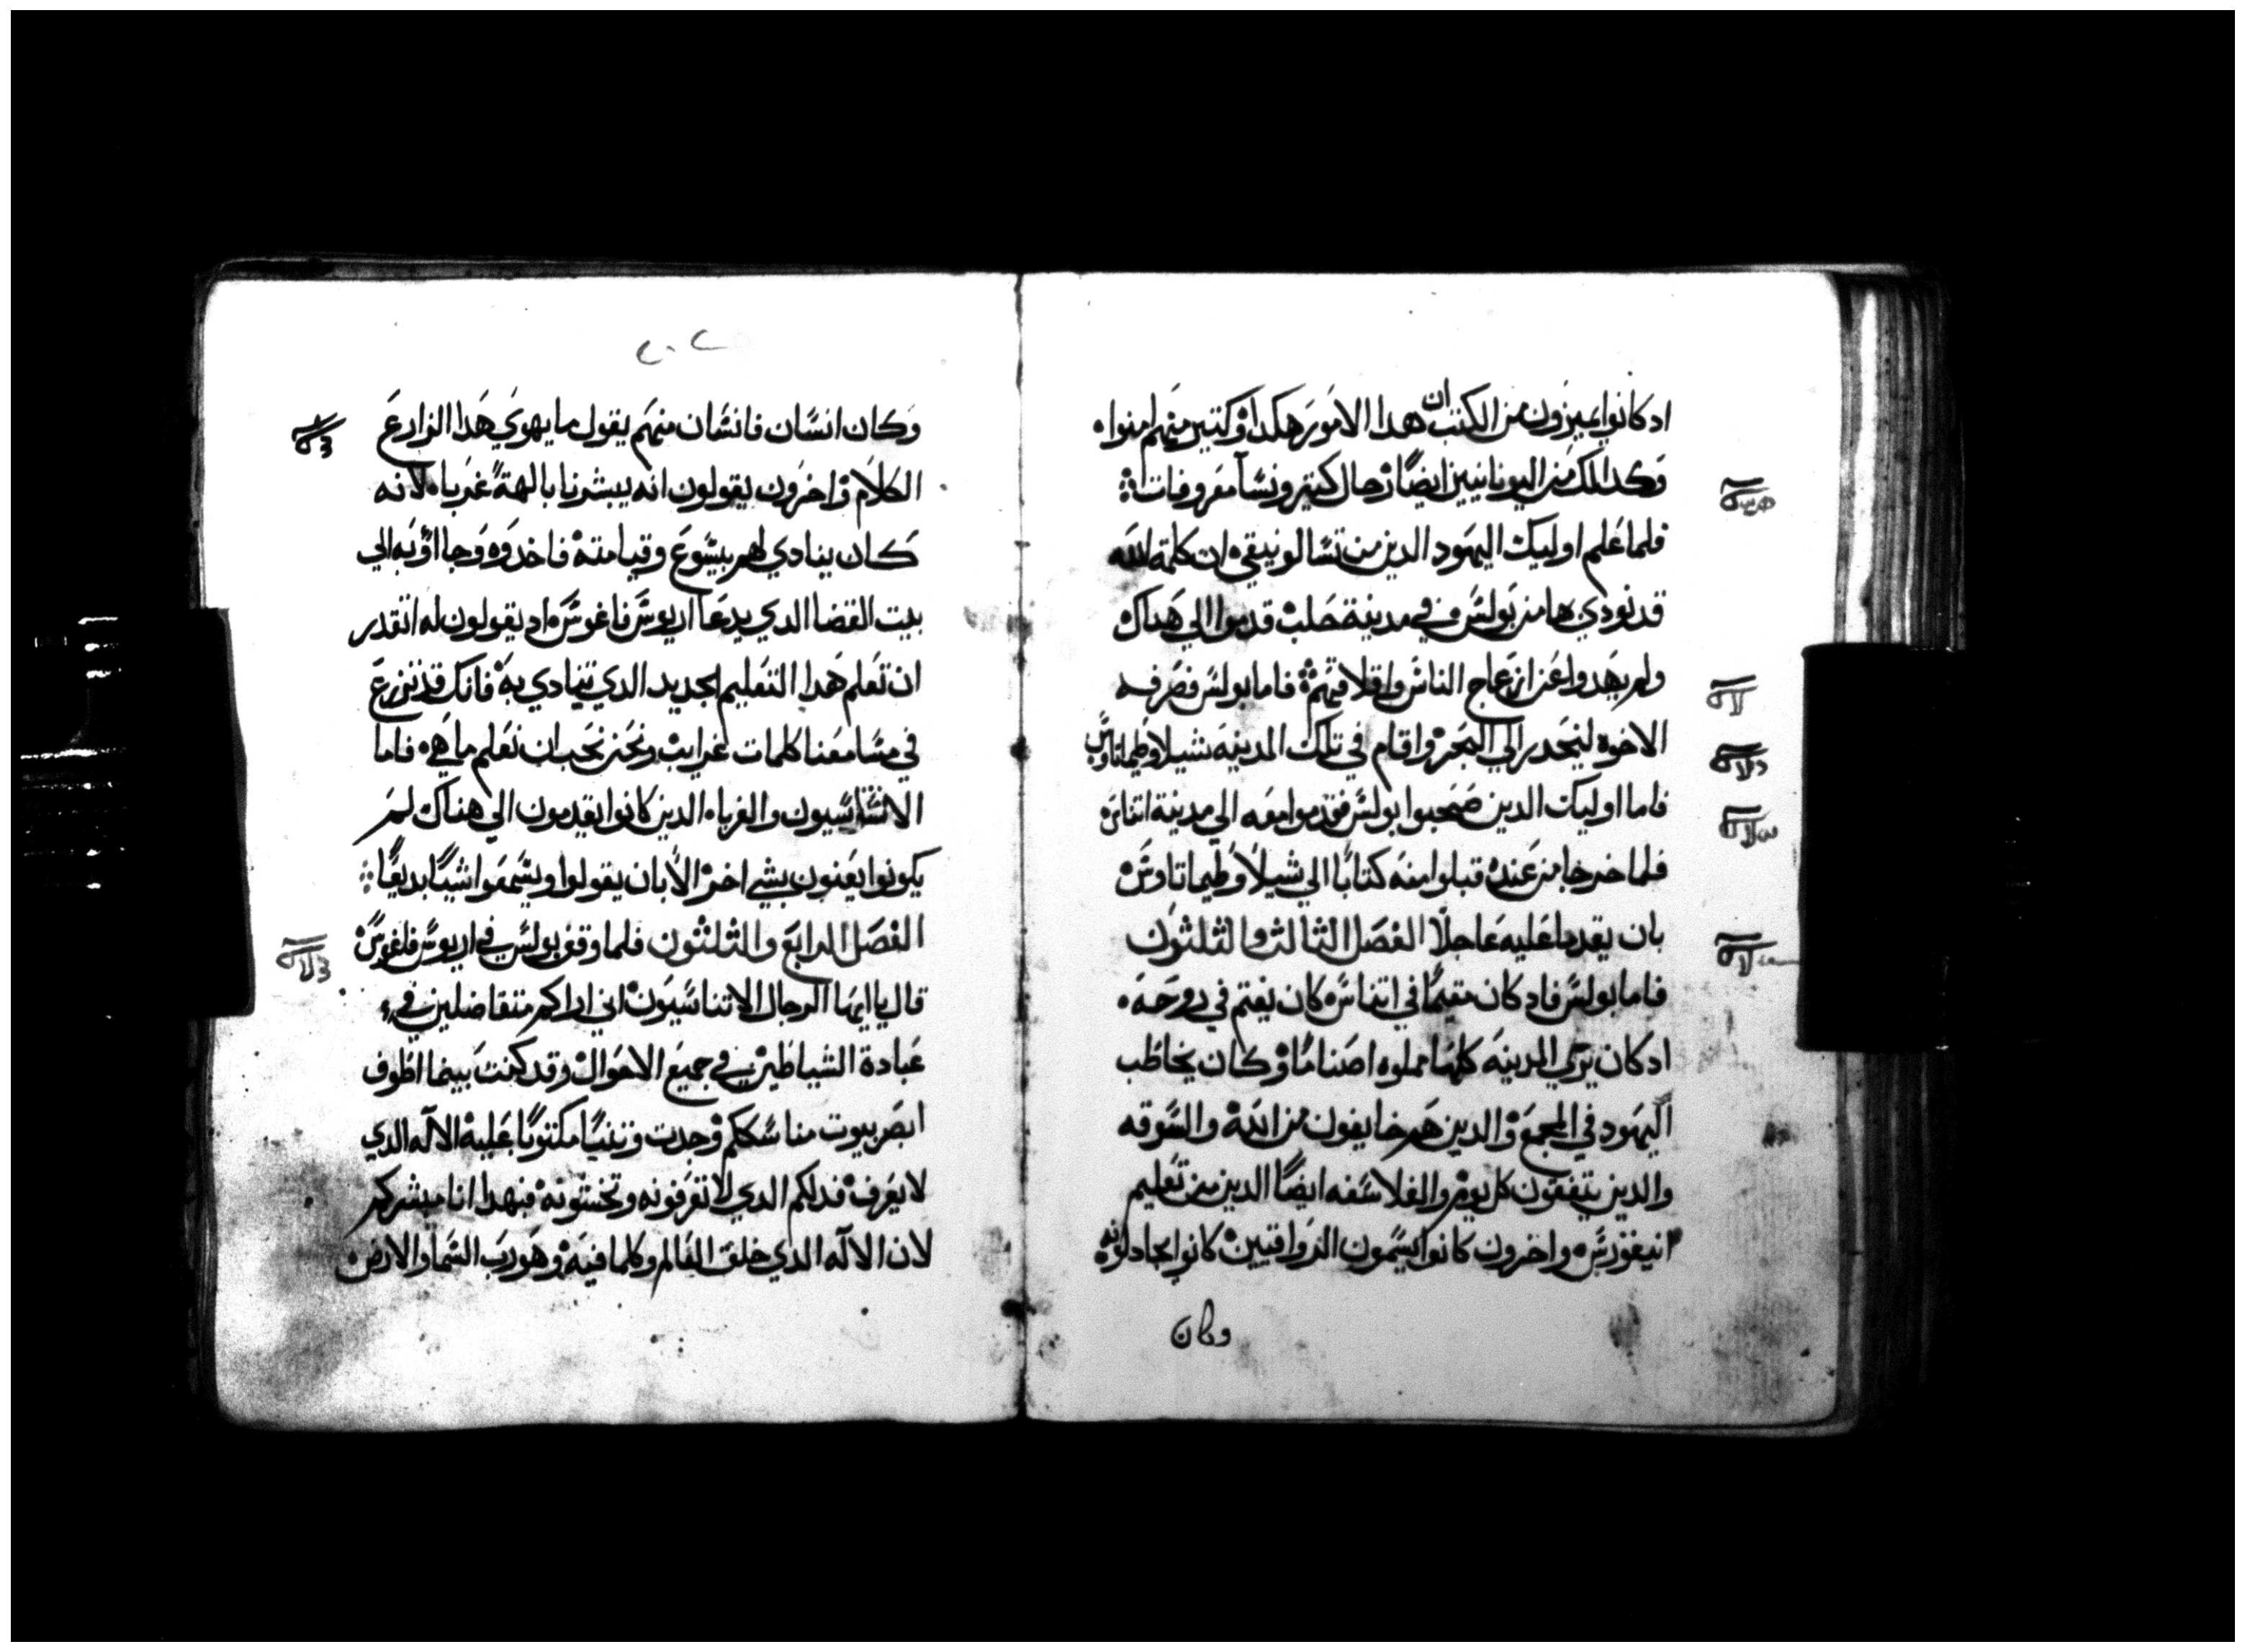 ادكانوا يميزون من الكتب ان هدا الامور هكدا وكتير منهم امنوا
وكدالك من اليونانيين ايضًا رجال كتير ونسآ معروفات
فلما علم اوليك اليهود الدين من تسالونيقي ان كلمة الله
قد نودي بها من بولس في مدينة حلب قدموا الي هداك
ولم يهدوا عن ازعاج الناس واقلاقهم فاما بولس فصرفه
الاخوه لينحدر الي البحر واقام في تلك المدينه شيلا وطيماتاوس
فاما اوليك الدين صحبوا بولس فقدموا معه الي مدينة اتناس
فلما خرجا من عنده قبلوا منه كتابًا الي شيلا وطيماتاوس
بان يقدما عليه عاجلًا الفصل التالت والتلتون
فاما بولس فادكان مقيمًا في اتناس كان يغتم في روحه
ادكان يري المدينه كلها مملوه اصنامًا وكان يخاطب
اليهود في المجمع والدين هم خايفون من الله والسوقه
والدين يتفقون كل يوم والفلاسفه ايضًا الدين من تعليم
ابيغورس واخرون كانوا يسمون الرواقيين كانوا يجادلونه
وكان
٢٠٢
وكان انسان فانسان منهم يقول ما يهوي هدا الزارع
الكلام واخرون يقولون انه يبشرنا بالهة غرباء لانه
كان ينادي لهم بيسوع وقيامته فاخدوه وجااوا به الي
بيت القضا الدي يدعا اريوس فاغوس اد يقولون له اتقدر
ان تعلم هدا التعليم الجديد الدي تنادي به فانك قد تزرع
في مسامعنا كلمات غرايب ونحن نحب ان نعلم ما هي فاما
الاتناسيون والغرباء الدين كانوا يقدمون الي هناك لم
يكونوا يعنون بشي اخر الا بان يقولوا ويسمعوا شيًا بديعًا
الفصل الرابع والتلتون فلما وقف بولس في اريوس فاغوس
قال يا ايها الرجال الاتناسيون اني اراكم متفاضلين في
عبادة الشياطين في جميع الاحوال وقد كنت بينما اطوف
ابصر بيوت مناسككم وجدت وتنيًا مكتوبًا عليه الاله الدي
لا يعرف فدلكم الدي لا تعرفونه وتخشونه فبهدا انا مبشركم
لان الاله الدي خلق العالم وكلما فيه وهو رب السما والارض